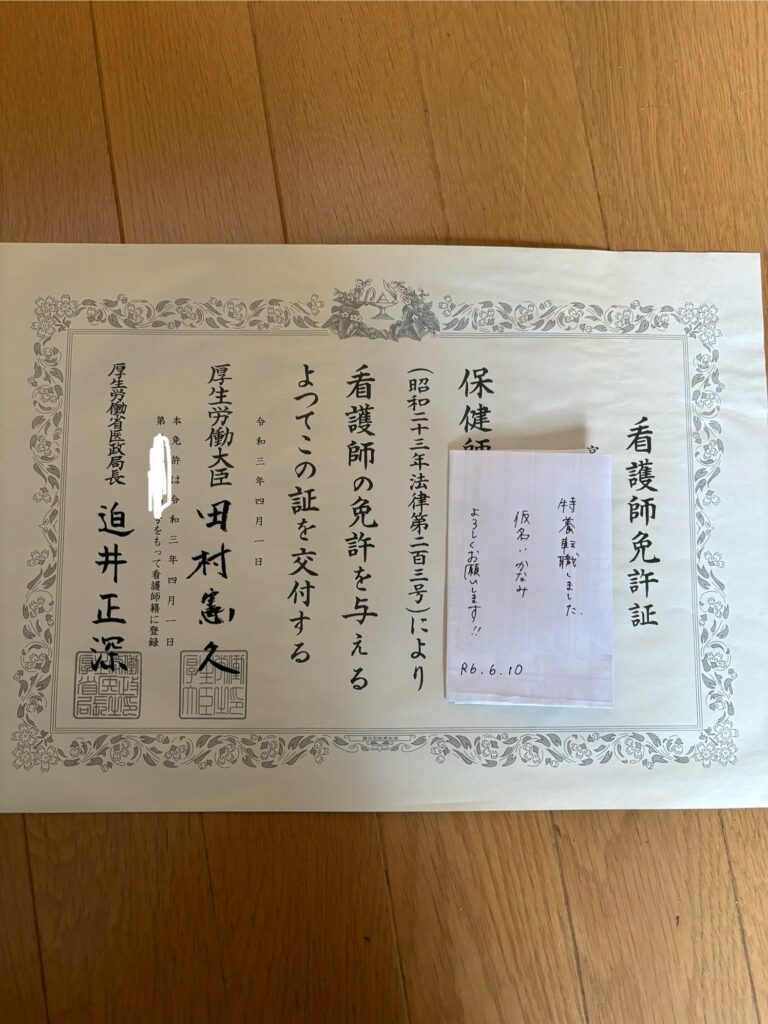 看護師免許証
宮
保健師
(昭和二十三年法律第二百三号)により
看護師の免許を与える
よつてこの証を交付する
令和三年四月一日
厚生労働大臣 田村憲久
本免許は令和三年四月一日
第 号をもって看護師籍に登録
厚生労働省医政局長 迫井正深
特養転職しました
仮名:かなみ
よろしくお願いします!!
R6.6.10